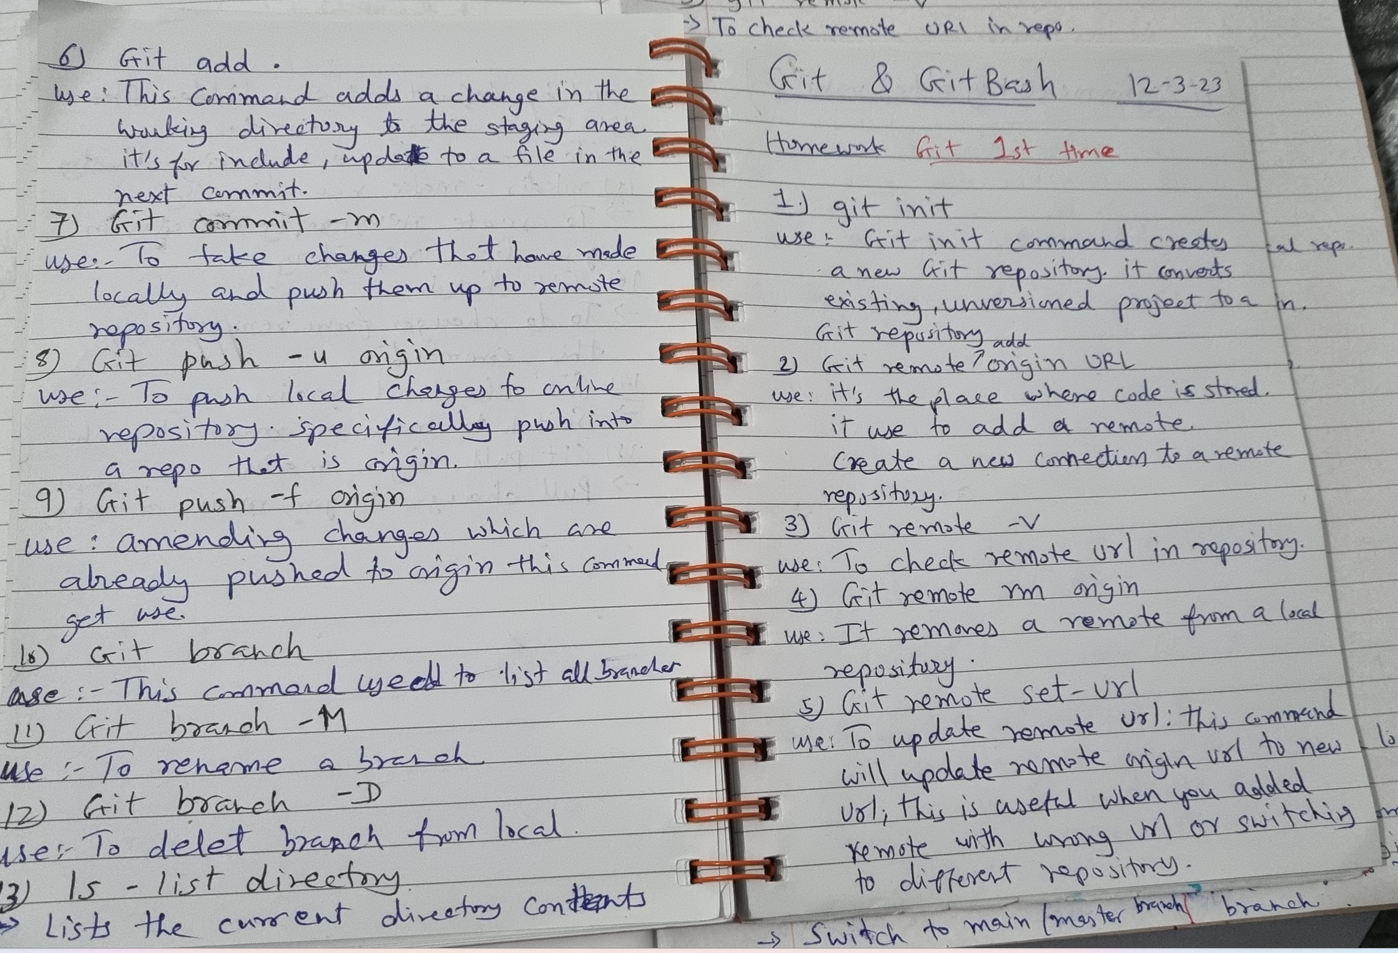 6) Git add .
use: This Command adds a change in the
working directory to the staging area.
it's for include, update to a file in the
next commit.
7) Git commit -m
use:- To take changes that have made
locally and push them up to remote
repository.
8) Git push -u origin
use:- To push local changes to online
repository. specifically push into
a repo that is origin.
9) Git push -f origin
use: amending changes which are
already pushed to origin this command
get use.
10) Git branch
use :- This command used to list all branches
11) Git branch -M
use :- To rename a branch
12) Git branch -D
use:- To delet branch from local.
3) ls - list directory.
Lists the current directory contents
-> To check remote URl in repo.
Git & GitBash 12-3-23
Homework Git 1st time
1.) git init
use: Git init command creates
a new Git repository. it converts
existing, unversioned project to a
Git repository
add
2) Git remote ? origin URL
use: it's the place where code is stored.
it use to add a remote.
Create a new connection to a remote
repository.
3) Git remote -V
use: To check remote url in repository.
4) Git remote rm origin
use: It removes a remote from a local
repository.
5) Git remote set-url
use: To update remote url: this command
will update remote origin url to new
url; this is useful when you added
remote with wrong url or switching
to different repository.
-> Switch to main (master branch) branch.